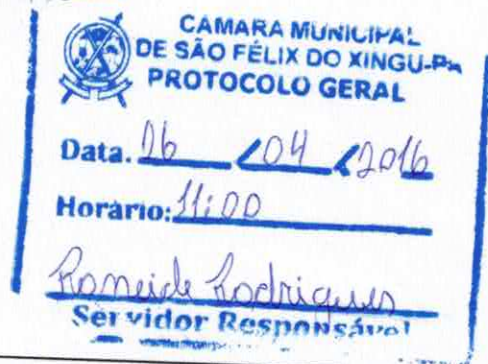 CAMARA MUNICIPAL
DE SÃO FÉLIX DO XINGU-PA
PROTOCOLO GERAL
Data. 06 / 04 / 2016
Horário: 11:00
Roneide Rodrigues
Servidor Responsável